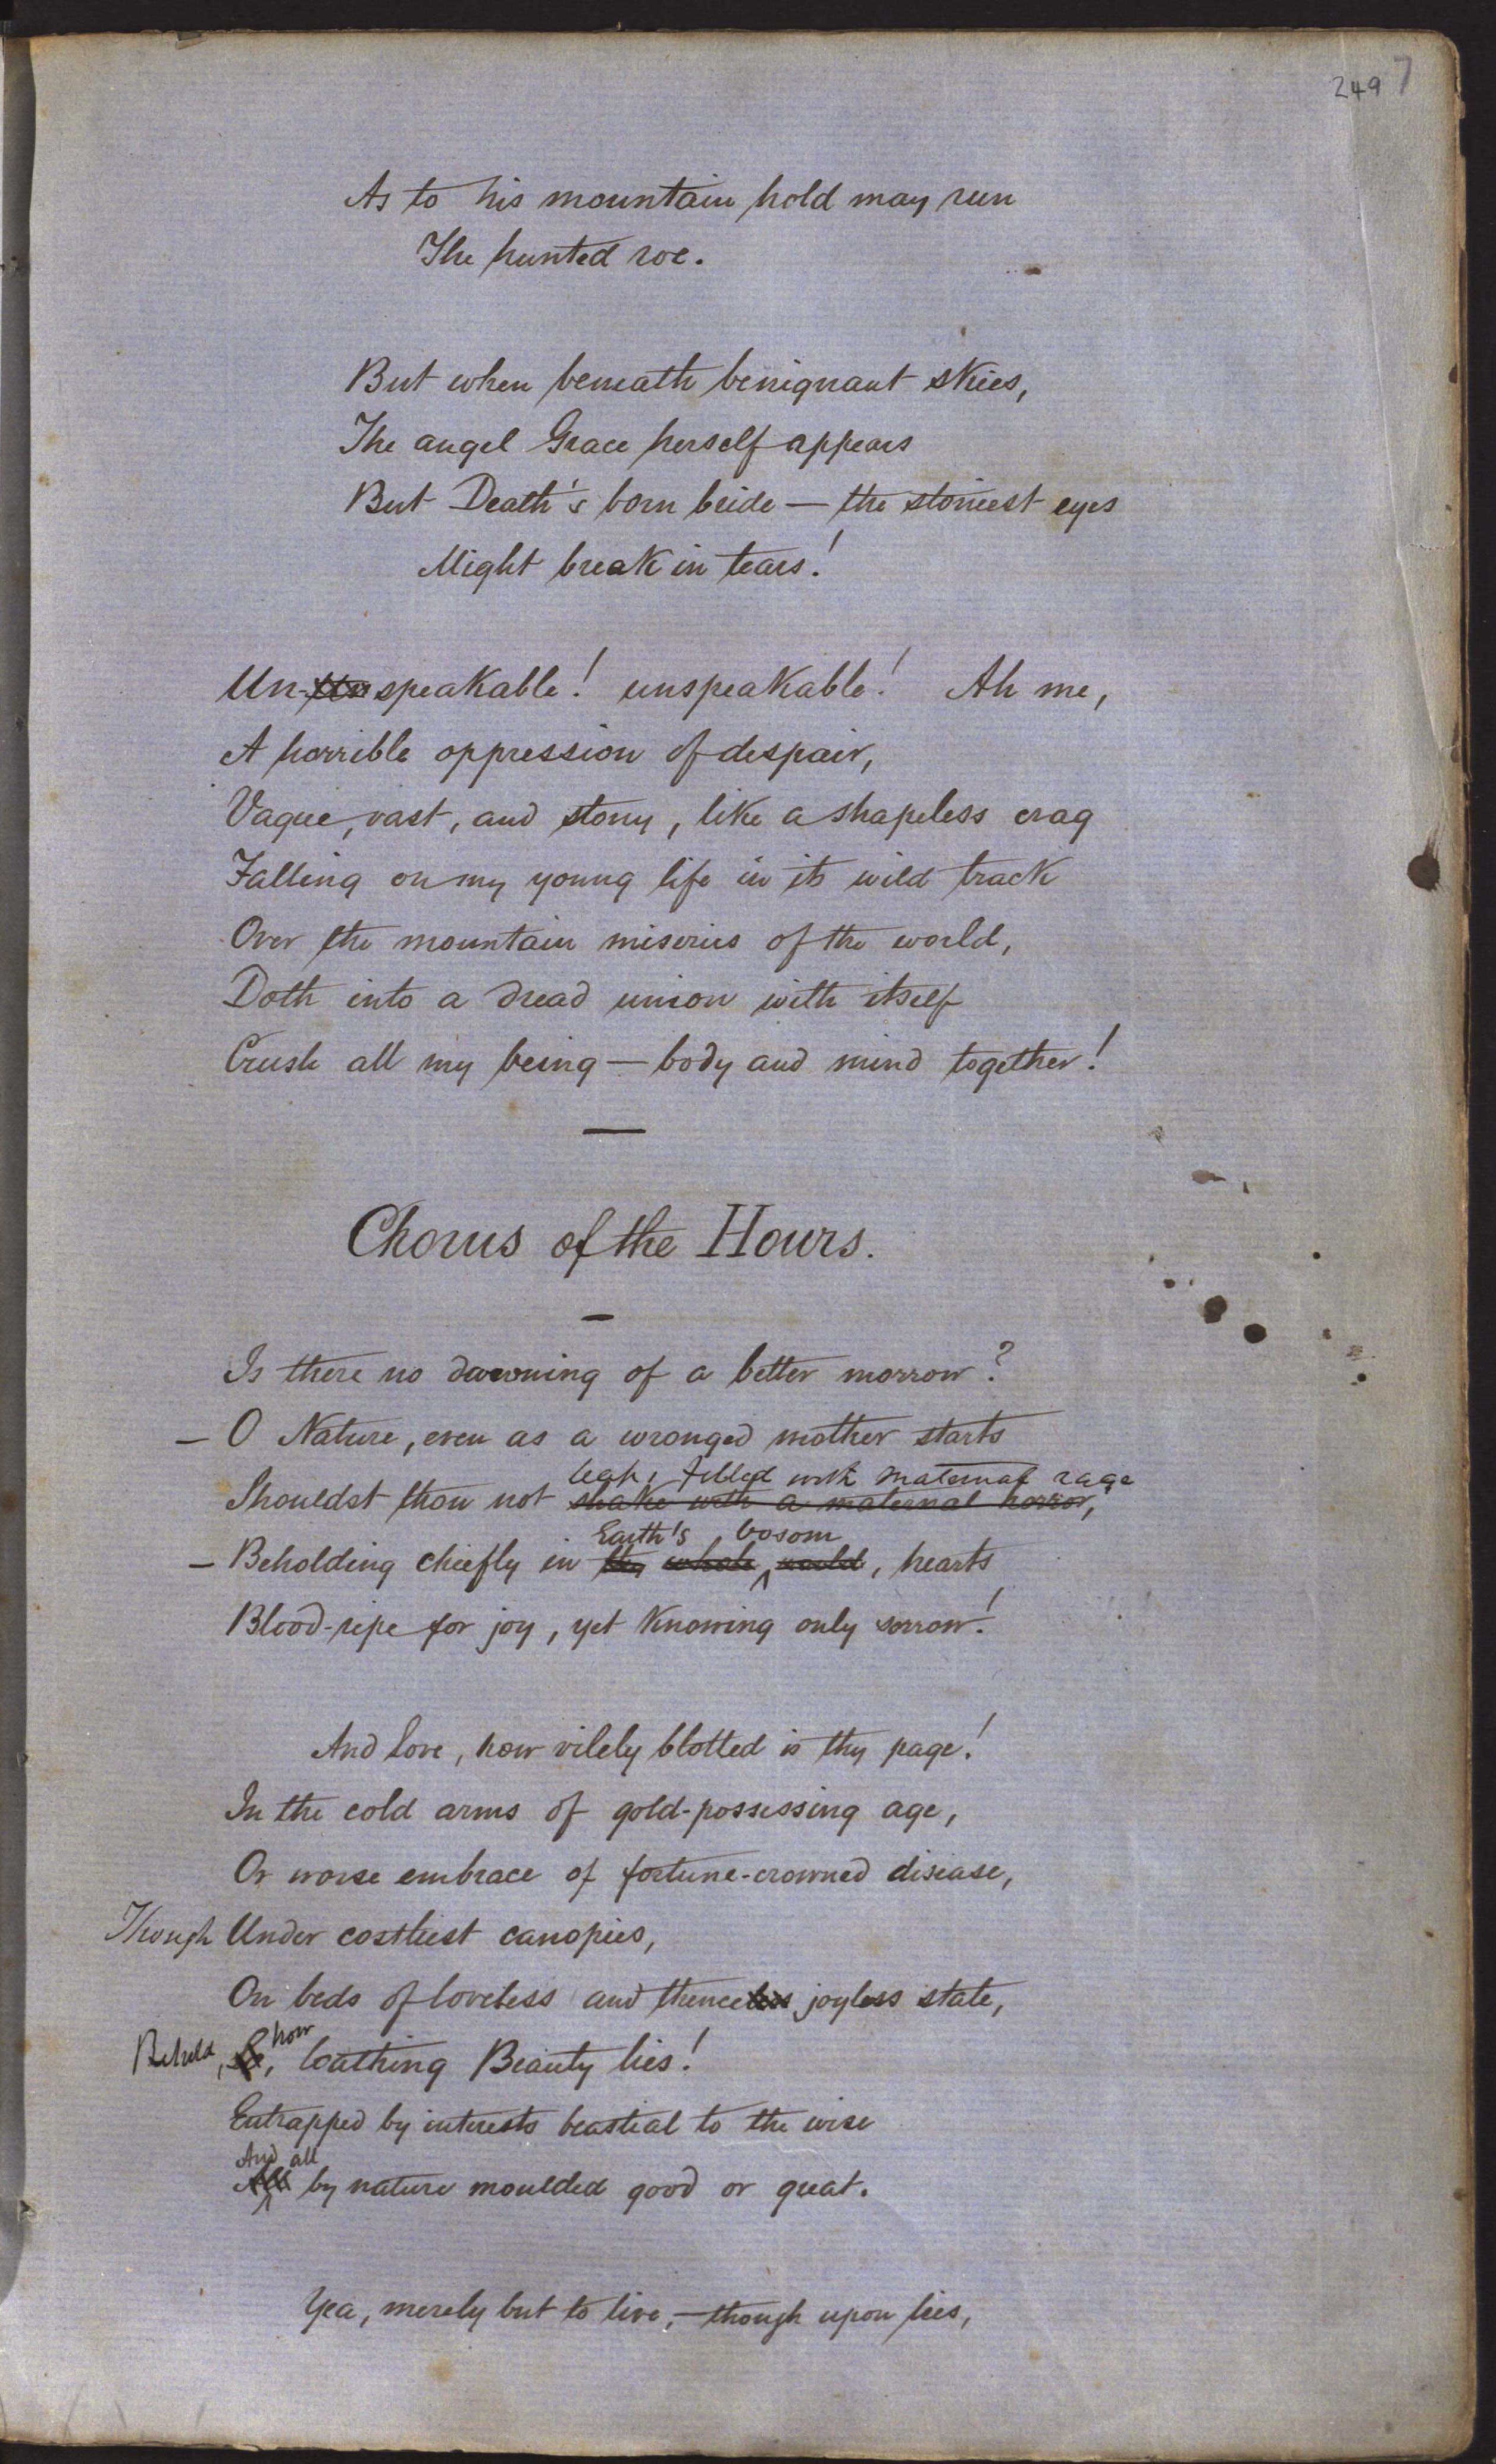 249 7
As to his mountain hold may run
The hunted roe.
But when beneath benignant skies,
The angel Grace herself appears
But Death's born bride — the stoniest eyes
Might break in tears!
Un-speakable! unspeakable! Ah me,
A horrible oppression of despair,
Vague, vast, and stony, like a shapeless crag
Falling on my young life in its wild track
Over the mountain miseries of the world,
Doth into a dread union with itself
Crush all my being — body and mind together!
Chorus of the Hours.
Is there no dawning of a better morrow?
— O Nature, even as a wronged mother starts
leap, filled with maternal rage
Shouldst thou not shake with a maternal horror,
Earth's bosom
— Beholding chiefly in thy whole world, hearts
Blood-ripe for joy, yet knowing only sorrow!
And love, how vilely blotted is thy page!
In the cold arms of gold-possessing age,
Or worse embrace of fortune-crowned disease,
Though Under costliest canopies,
On beds of loveless and thence joyless state,
how
Behold, loathing Beauty lies!
Entrapped by interests beastial to the wise
And all
All by nature moulded good or great.
Yea, merely but to live, — though upon lies,